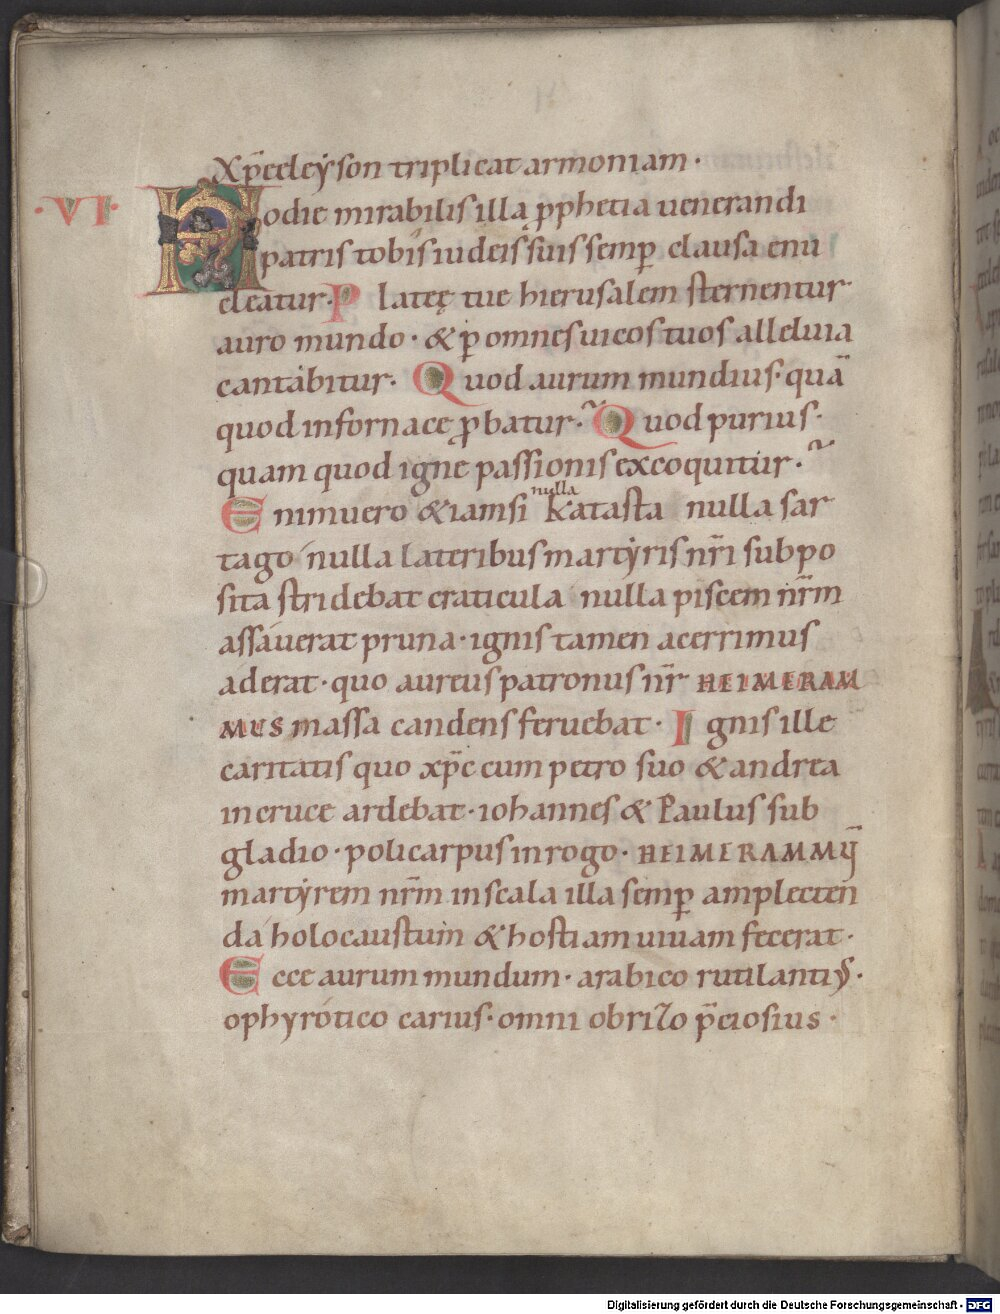 Xp̄eeleẏson triplicat armoniam ·
· VI ·
Hodie mirabilis illa ꝓphetia uenerandi
patris tobis iudeis suis semꝑ clausa enu
cleatur. Plateę tuę hierusalem sternentur
auro mundo · & ꝑ omnes uicos tuos alleluia
cantabitur. Quod aurum mundius · quā
quod in fornace ꝓbatur. Quod purius ·
quam quod igne passionis excoquitur.
Enimuero & iamsi nulla katasta nulla sar
tago nulla lateribus martẏris nr̄i subpo
sita stridebat craticula nulla piscem nr̄m
assauerat pruna · ignis tamen acerrimus
aderat · quo aureus patronus nr̄ HEIMERAM
MUS massa candens feruebat · Ignis ille
caritatis quo xp̄c cum petro suo & andrea
in cruce ardebat · iohannes & Paulus sub
gladio · policarpus in rogo · HEIMERAMMŪ
martẏrem nr̄m in scala illa semꝑ amplecten
da holocaustum & hostiam uiuam fecerat ·
Ecce aurum mundum · arabico rutilantiꝰ ·
ophyrótico carius · omni obrizo p̄ciosius ·
Digitalisierung gefördert durch die Deutsche Forschungsgemeinschaft - DFG